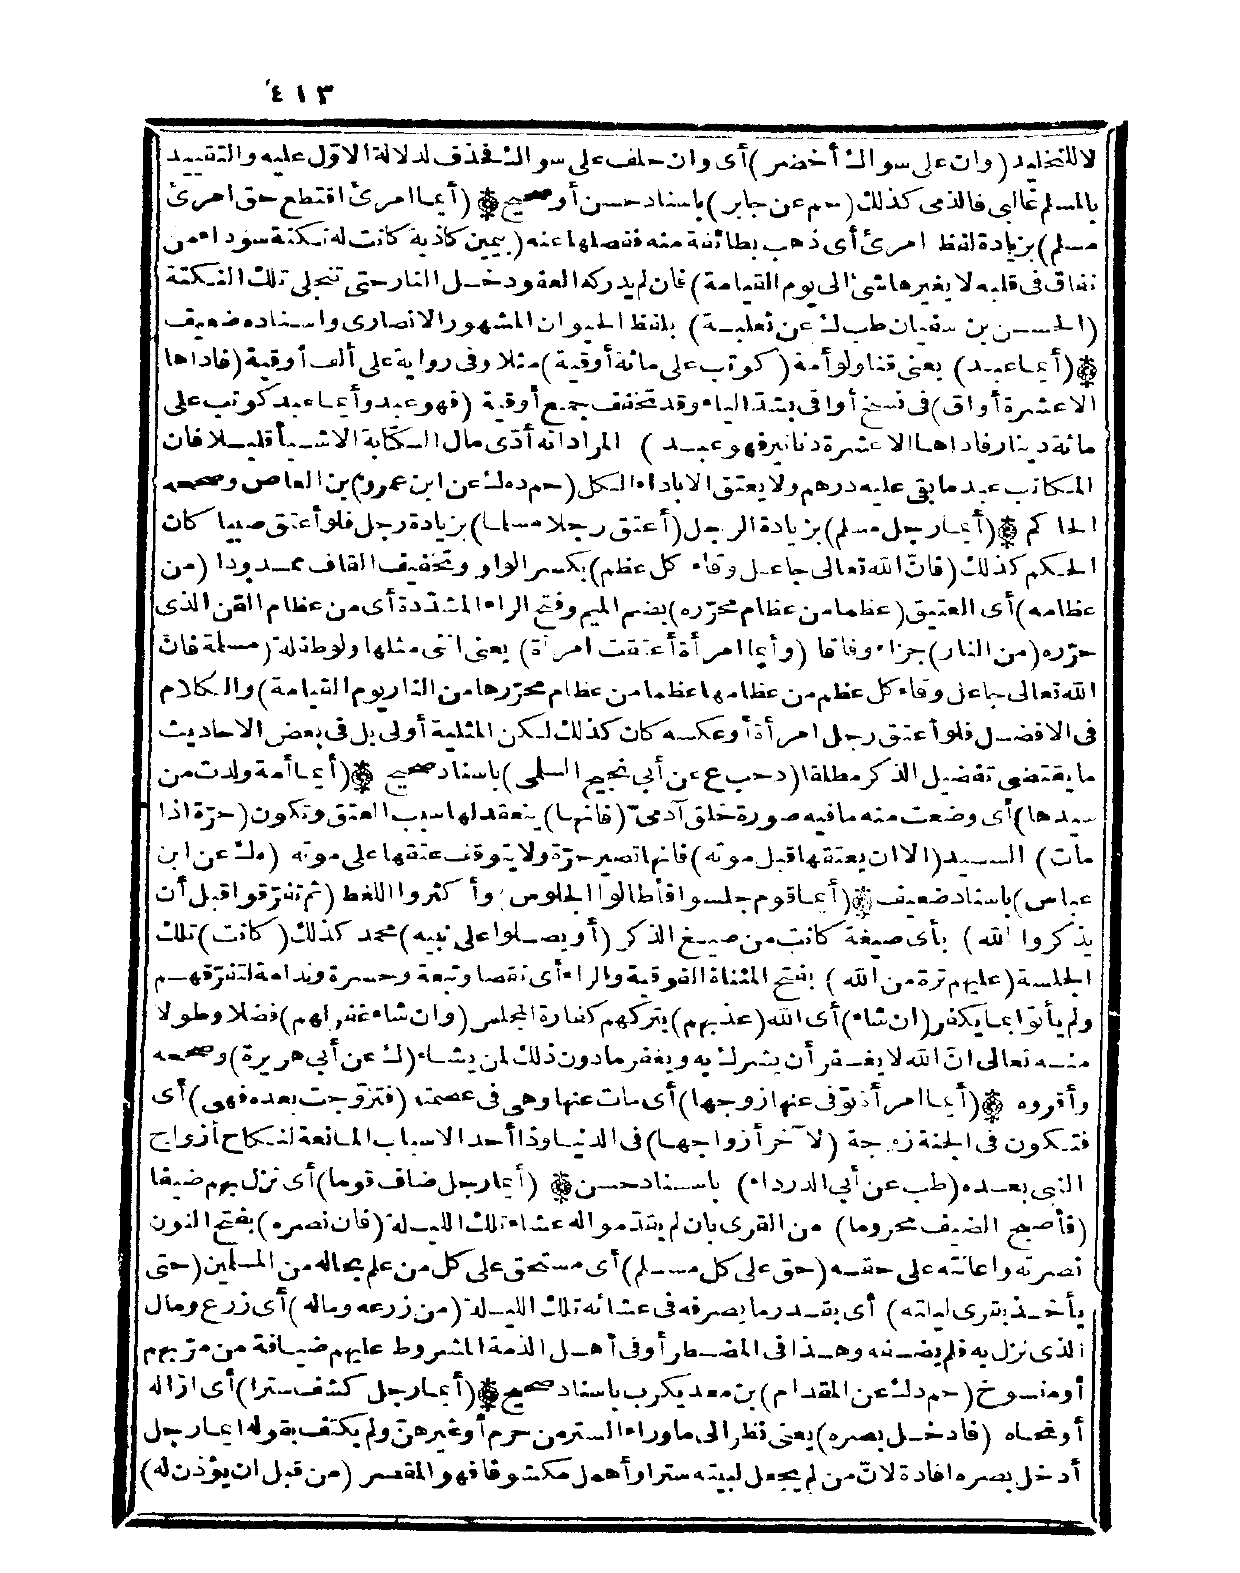 ٤١٣
لا للتخليد (وان على سواك أخضر) أى وان حلف على سواك فحذف لدلالة الاوّل عليه والتقييد
بالمسلم غالبى فالذمى كذلك (حم عن جابر) باسناد حسن أو صحيح ۞ (أيما امرئ اقتطع حق امرئ
مسلم) بزيادة لفظ امرئ أى ذهب بطائفة منه ففصلها عنه (بيمين كاذبة كانت له نكتة سوداء من
نفاق فى قلبه لا يغيرها شئ الى يوم القيامة) فان لم يدركه العفو دخل النار حتى تنجلى تلك النكتة
(الحسن بن سفيان طب ك عن ثعلبة) بلفظ الحيوان المشهور الانصارى واسناده ضعيف
۞ (أيما عبد) يعنى قنا ولو أمة (كوتب على مائة أوقية) مثلا وفى رواية على ألف أوقية (فاداها
الا عشرة أواق) فى نسخ أواقى بشدّ الياء وقد تخفف جمع أوقية (فهو عبد وأيما عبد كوتب على
مائة دينار فاداها الا عشرة دنانير فهو عبد) المراد انه أدّى مال الكتابة الا شيأ قليلا فان
المكاتب عبد ما بقى عليه درهم ولا يعتق الا باداء الكل (حم ده ك عن ابن عمرو) بن العاص وصححه
الحاكم ۞ (أيما رجل مسلم) بزيادة الرجل (أعتق رجلا مسلما) بزيادة رجل فلو أعتق صبيا كان
الحكم كذلك (فانّ الله تعالى جاعل وقاء كل عظم) بكسر الواو وتخفيف القاف ممدودا (من
عظامه) أى العتيق (عظما من عظام محرّره) بضم الميم وفتح الراء المشدّدة أى من عظام القن الذى
حرّره (من النار) جزاء وفاقا (وأيما امرأة أعتقت امرأة) يعنى انثى مثلها ولو طفلة (مسلمة فانّ
الله تعالى جاعل وقاء كل عظم من عظامها عظما من عظام محرّرها من النار يوم القيامة) والكلام
فى الافضل فلو أعتق رجل امرأة أو عكسه كان كذلك لكن المثلية أولى بل فى بعض الاحاديث
ما يقتضى تفضيل الذكر مطلقا (د حب ع عن أبى نجيح السلمى) باسناد صحيح ۞ (أيما أمة ولدت من
سيدها) أى وضعت منه ما فيه صورة خلق آدمىّ (فانها) ينعقد لها سبب العتق وتكون (حرّة اذا
مات) السيد (الا ان يعتقها قبل موته) فانها تصير حرّة ولا يتوقف عتقها على موته (ه ك عن ابن
عباس) باسناد ضعيف ۞ (أيما قوم جلسوا فأطالوا الجلوس) وأكثروا اللغط (ثم تفرّقوا قبل أن
يذكروا الله) بأى صيغة كانت من صيغ الذكر (أو يصلوا على نبيه) محمد كذلك (كانت) تلك
الجلسة (عليهم ترة من الله) بفتح المثناة الفوقية والراء أى نقصا وتبعة وحسرة وندامة لتفرّقهم
ولم يأتوا بما يكفر (ان شاء) أى الله (عذبهم) بتركهم كفارة المجلس (وان شاء غفر لهم) فضلا وطولا
منه تعالى انّ الله لا يغفر أن يشرك به ويغفر ما دون ذلك لمن يشاء (ك عن أبى هريرة) وصححه
وأقروه ۞ (أيما امرأة توفى عنها زوجها) أى مات عنها وهى فى عصمته (فتزوّجت بعده فهى) أى
فتكون فى الجنة زوجة (لآخر أزواجها) فى الدنيا وذا أحد الاسباب المانعة لنكاح أزواج
النبى بعده (طب عن أبى الدرداء) باسناد حسن ۞ (أيما رجل ضاف قوما) أى نزل بهم ضيفا
(فأصبح الضيف محروما) من القرى بان لم يقدّموا له عشاء تلك الليلة (فان نصره) بفتح النون
نصرته واعانته على حقه (حق على كل مسلم) أى مستحق على كل من علم بحاله من المسلمين (حتى
يأخذ بقرى ليلته) أى بقدر ما يصرفه فى عشائه تلك الليلة (من زرعه وماله) أى زرع ومال
الذى نزل به فلم يضفه وهذا فى المضطر أو فى أهل الذمة المشروط عليهم ضيافة من مرّ بهم
أو منسوخ (حم د ك عن المقدام) بن معد يكرب باسناد صحيح ۞ (أيما رجل كشف سترا) أى ازاله
أو نحاه (فادخل بصره) يعنى نظر الى ما وراء الستر من حرم أو غيرهنّ ولم يكتف بقوله ايما رجل
أدخل بصره افادة لانّ من لم يجعل لبيته سترا وأهمل مكشوفا فهو المقصر (من قبل ان يؤذن له)